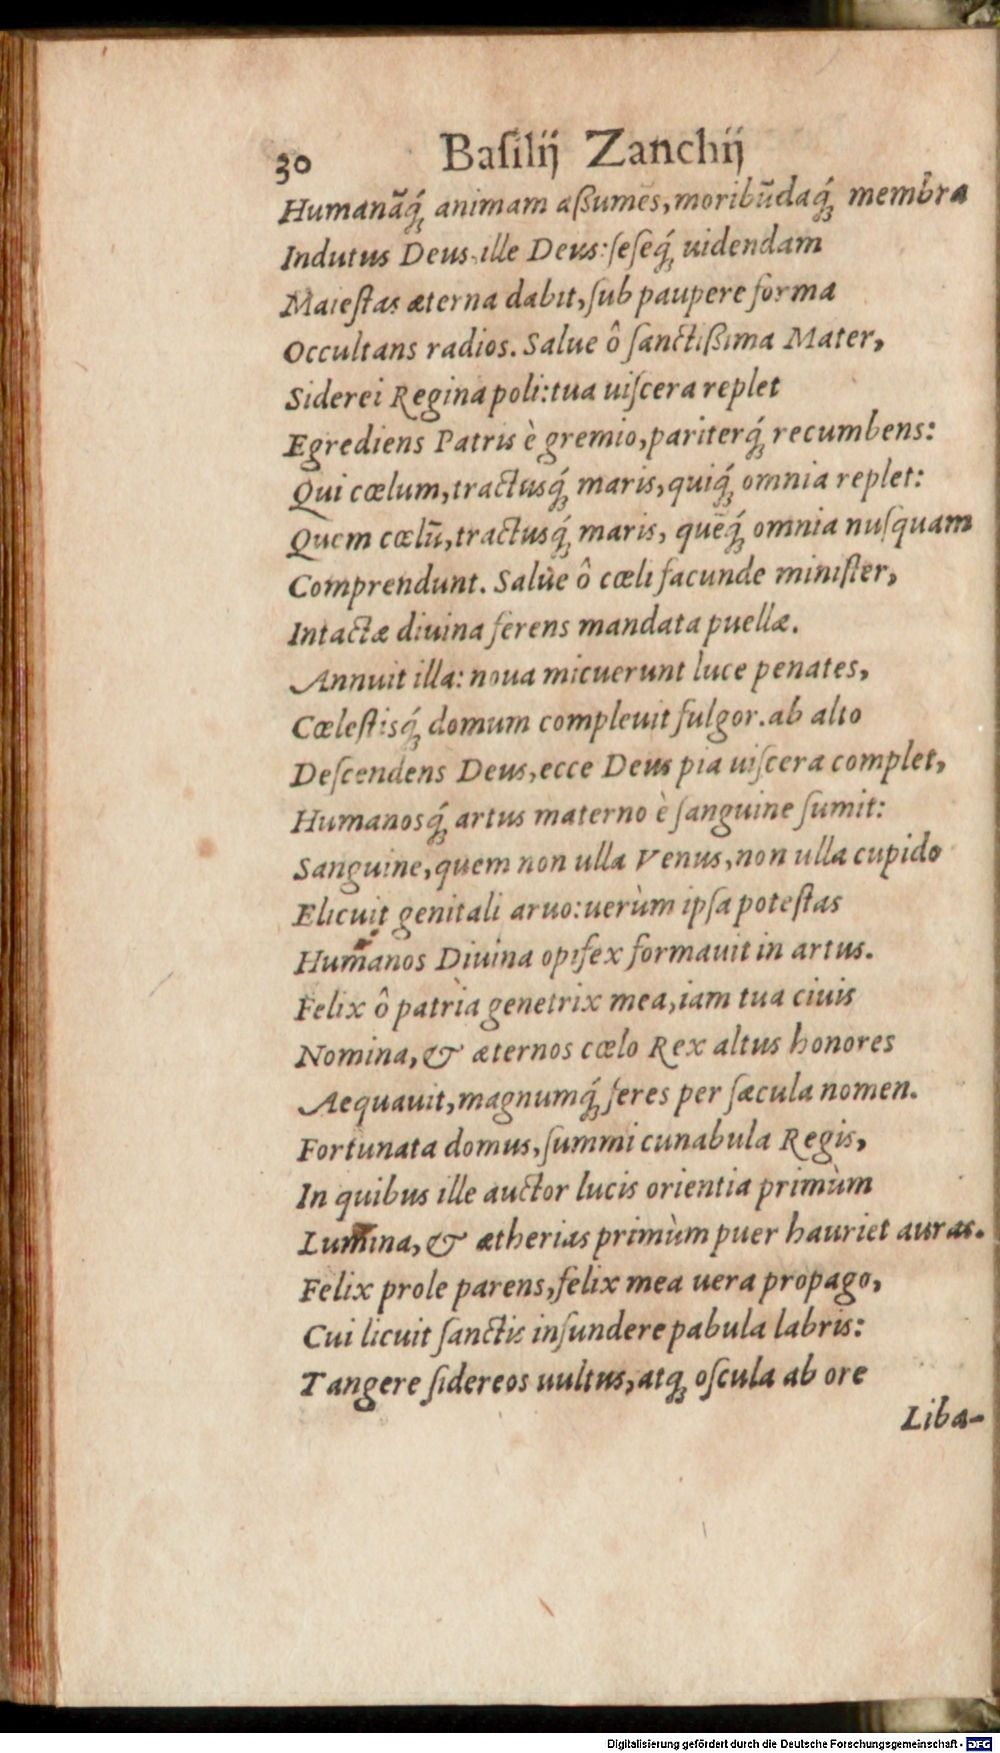 30 Baſilij Zanchij
Humanãq́; animam aßumẽs, moribũdaq́; membra
Indutus Deus, ille Deus: ſeſeq́; uidendam
Maieſtas æterna dabit, ſub paupere forma
Occultans radios. Salue ô ſanctißima Mater,
Siderei Regina poli: tua uiſcera replet
Egrediens Patris è gremio, pariterq́; recumbens:
Qui cœlum, tractusq́; maris, quiq́; omnia replet:
Quem cœlũ, tractusq́; maris, quẽq́; omnia nuſquam
Comprendunt. Salue ô cœli facunde miniſter,
Intactæ diuina ferens mandata puellæ.
Annuit illa: noua micuerunt luce penates,
Cœleſtisq́; domum compleuit fulgor. ab alto
Deſcendens Deus, ecce Deus pia uiſcera complet,
Humanosq́; artus materno è ſanguine ſumit:
Sanguine, quem non ulla Venus, non ulla cupido
Elicuit genitali aruo: uerùm ipſa poteſtas
Humanos Diuina opifex formauit in artus.
Felix ô patria genetrix mea, iam tua ciuis
Nomina, & æternos cœlo Rex altus honores
Aequauit, magnumq́; feres per ſæcula nomen.
Fortunata domus, ſummi cunabula Regis,
In quibus ille auctor lucis orientia primùm
Lumina, & ætherias primùm puer hauriet auras.
Felix prole parens, felix mea uera propago,
Cui licuit ſanctis infundere pabula labris:
Tangere ſidereos uultus, atq; oſcula ab ore
Liba-
Digitalisierung gefördert durch die Deutsche Forschungsgemeinschaft - DFG